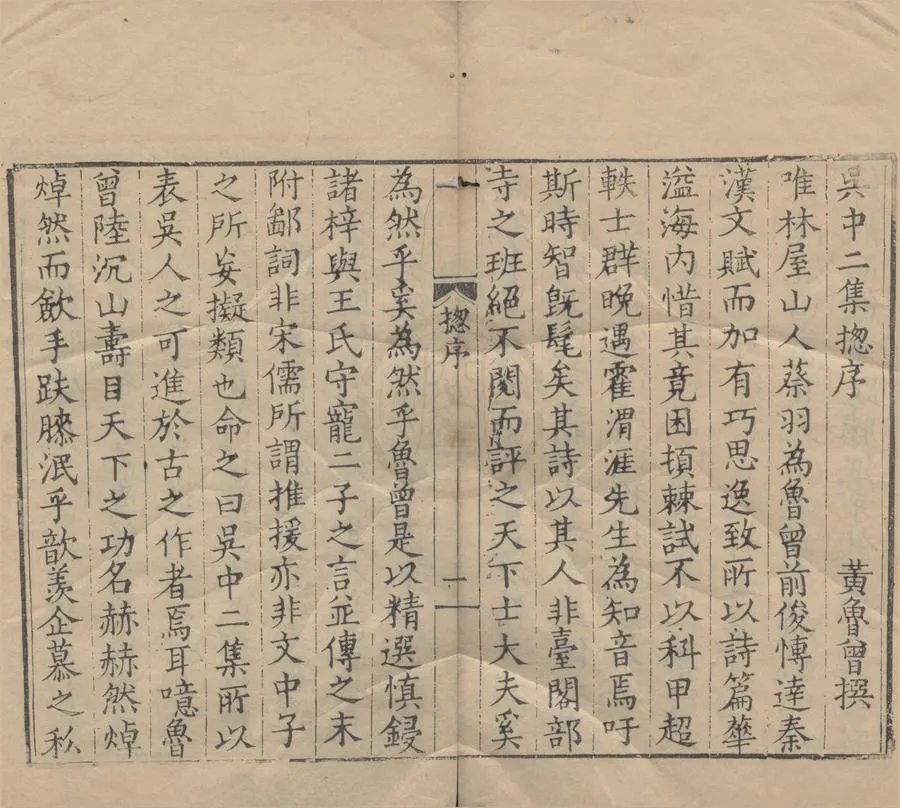 吳中二集揔序 黃魯曾撰
唯林屋山人蔡羽為魯曾前俊愽達秦
漢文賦而加有巧思逸致所以詩篇華
溢海内惜其竟困頓棘試不以科甲超
軼士群晩遇霍渭涯先生為知音焉吁
斯時智旣髦矣其詩以其人非臺閣部
寺之班絕不閱而評之天下士大夫奚
揔序
一
為然乎奚為然乎魯曾是以精選慎鋟
諸梓與王氏守寵二子之言並傳之末
附鄙詞非宋儒所謂推援亦非文中子
之所妄擬類也命之曰吳中二集所以
表吳人之可進於古之作者焉耳噫魯
曾陸沉山壽目天下之功名赫赫然焯
焯然而歛手趺膝泯乎歆羡企慕之私